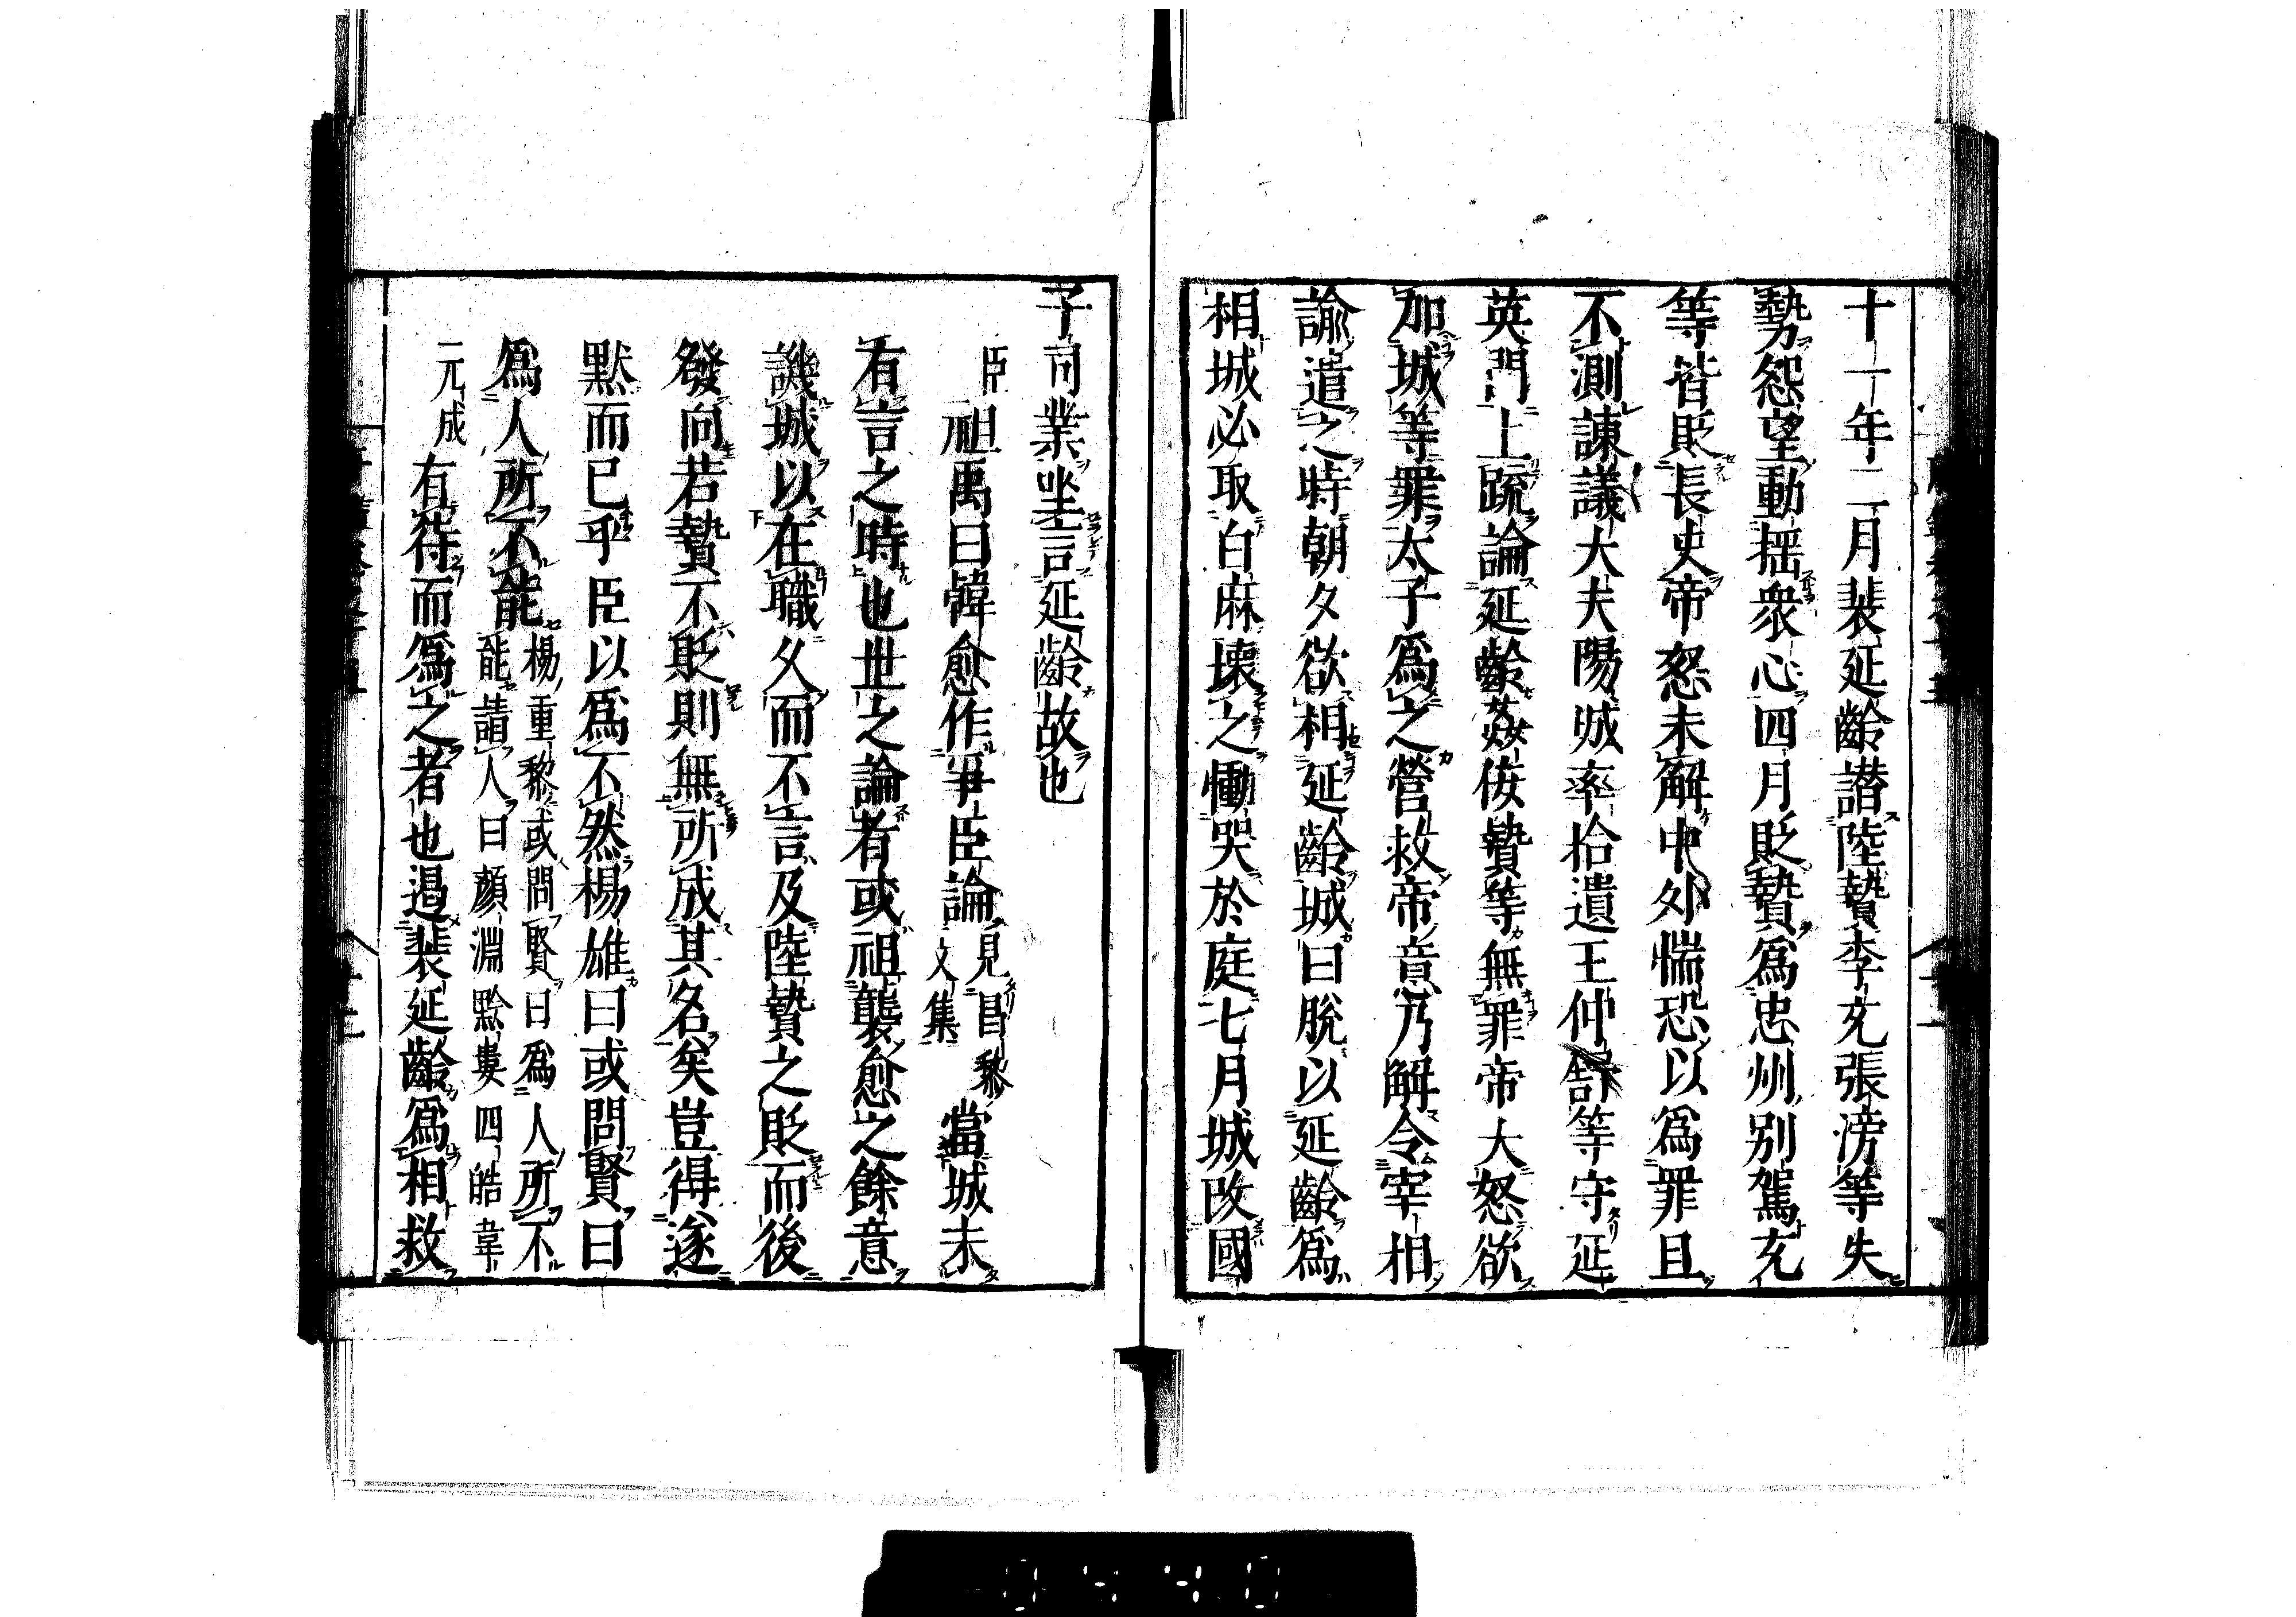 十一年二月裴延齡譖陸贄李充張滂等失
勢怨望動揺衆心四月貶贄爲忠州別駕充
等皆貶長史帝怒未解中外惴恐以爲罪且
不測諫議大夫陽城率拾遺王仲舒等守延
英門上疏論延齡姦佞贄等無罪帝大怒欲
加城等罪太子爲之營救帝意乃解令宰相
諭遣之時朝夕欲相延齡城曰脫以延齡爲
相城必取白麻壞之慟哭於庭七月城改國
子司業坐言延齡故也
臣祖禹曰韓愈作爭臣論見昌黎文集當城未
有言之時也世之論者或祖襲愈之餘意
譏城以在職久而不言及陸贄之貶而後
發向若贄不貶則無所成其名矣豈得遂
默而已乎臣以爲不然楊雄曰或問賢曰
爲人所不能楊重黎或問賢曰爲人所不能請人曰顏淵黔婁四皓韋
元成有待而爲之者也遏裴延齡爲相救